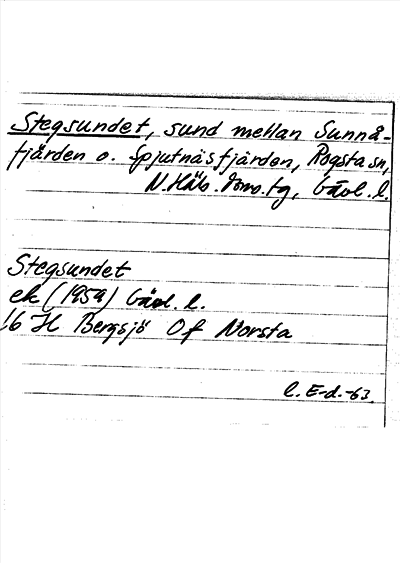 Stegsundet, sund mellan Sunnå-
fjärden o. Spjutnäsfjärden, Rogsta sn,
N.Häls. doms.tg, Gävl. l.
Stegsundet
ek (1959) Gävl. l.
16 H Bergsjö Of Norsta
l. E-d.-63.